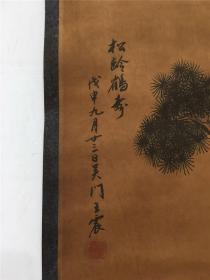 松龄鹤寿
戊申九月廿三日吴门王震